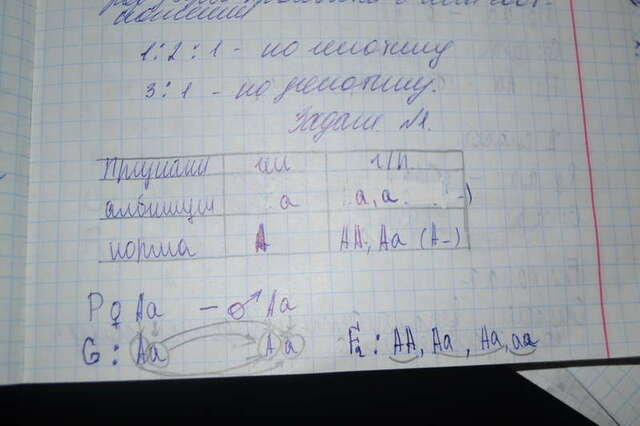 1:2:1 - по генотипу
3:1 - по фенотипу.
Задача №1.
Признаки г/п
альбинизм а а,а
норма А АА, Аа (А-)
P ♀ Аа — ♂ Аа
G: Аа А а F₂: АА, Аа, Аа, аа